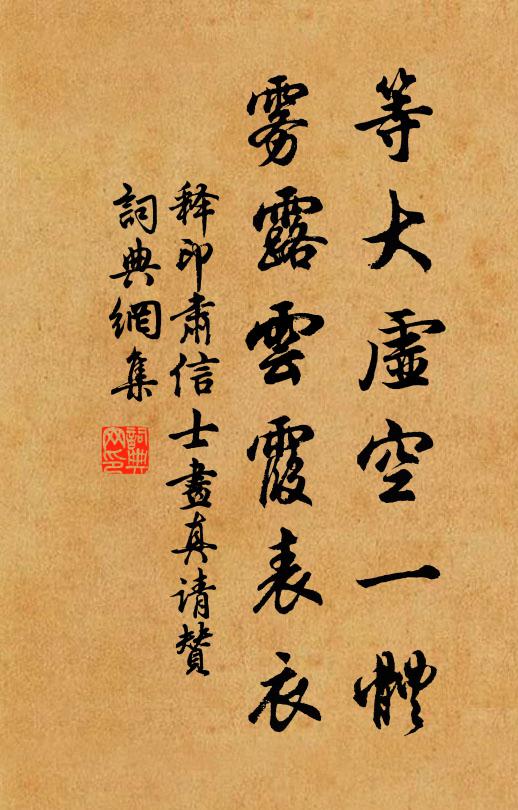 等大虛空一體
雾露雲霞表衣
释印肅信士畫真请贊
詞典網集
詞典網印